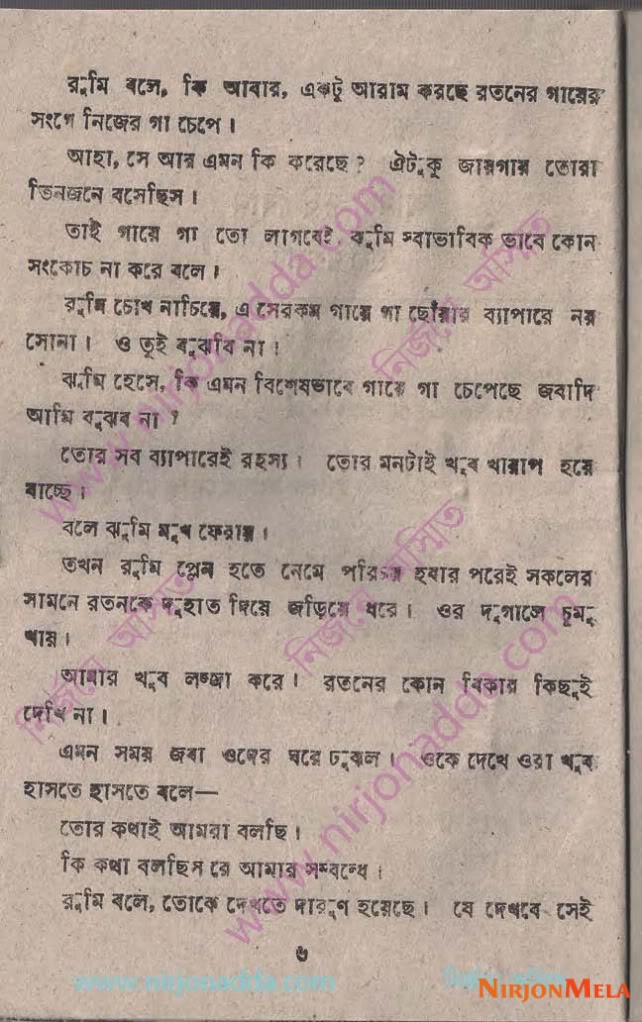 রুমি বলে, কি আবার, একটু আরাম করছে রতনের গায়ের
সংগে নিজের গা চেপে।
আহা, সে আর এমন কি করেছে? ঐটুকু জায়গায় তোরা
তিনজনে বসেছিস।
তাই গায়ে গা তো লাগবেই ঝুমি স্বাভাবিক ভাবে কোন
সংকোচ না করে বলে।
রুমি চোখ নাচিয়ে, এ সেরকম গায়ে গা ছোঁয়ার ব্যাপারে নয়
সোনা। ও তুই বুঝবি না।
ঝুমি হেসে, কি এমন বিশেষভাবে গায়ে গা চেপেছে জবাদি
আমি বুঝব না?
তোর সব ব্যাপারেই রহস্য। তোর মনটাই খুব খারাপ হয়ে
যাচ্ছে।
বলে ঝুমি মুখ ফেরায়।
তখন রুমি প্লেন হতে নেমে পরিচয় হবার পরেই সকলের
সামনে রতনকে দুহাত দিয়ে জড়িয়ে ধরে। ওর দুগালে চুমু
খায়।
আমার খুব লজ্জা করে। রতনের কোন বিকার কিছুই
দেখি না।
এমন সময় জবা ওদের ঘরে ঢুকল। ওকে দেখে ওরা খুব
হাসতে হাসতে বলে—
তোর কথাই আমরা বলছি।
কি কথা বলছিস রে আমার সম্বন্ধে।
রুমি বলে, তোকে দেখতে দারুণ হয়েছে। যে দেখবে সেই
৬
www.nirjonadda.com
NIRJONMELA